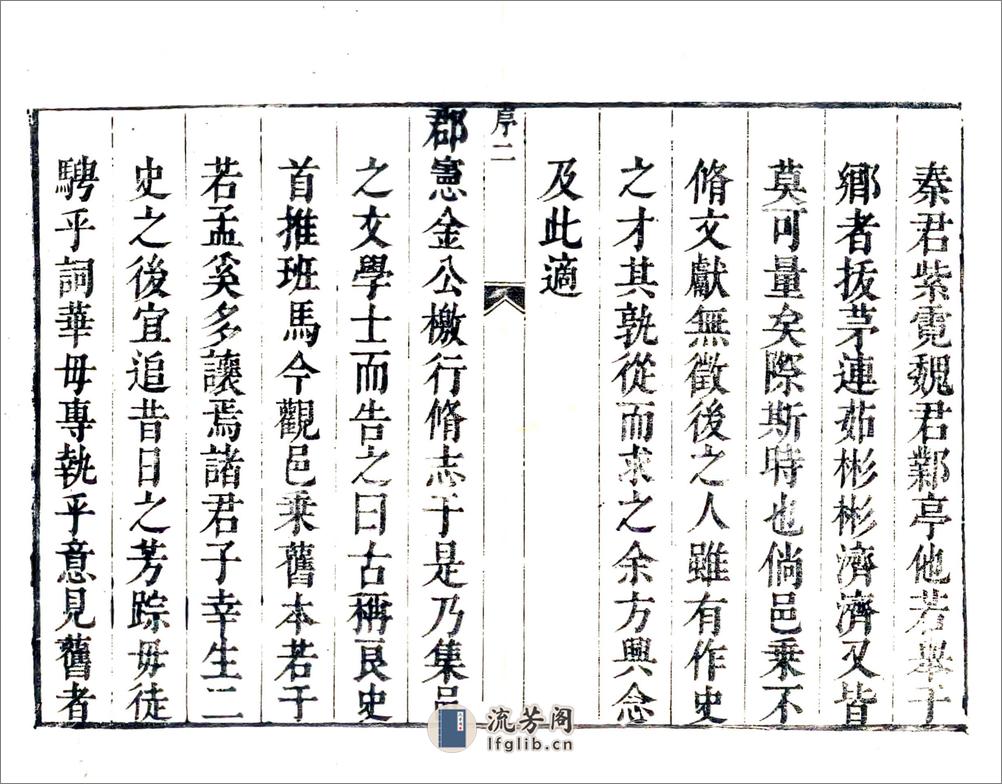 秦君紫霓魏君鄴亭他若舉于
鄉者拔茅連茹彬彬濟濟又皆
莫可量矣際斯時也倘邑乗不
脩文獻無徵後之人雖有作史
之才其孰從而求之余方興念
及此適
序二
郡憲金公檄行脩志于是乃集邑
之文學士而告之曰古稱良史
首推班馬今觀邑乗舊本若于
若孟奚多讓焉諸君子幸生二
史之後宜追昔日之芳踪毋徒
騁乎詞華毋專執乎意見舊者
流芳阁
lfglib.cn